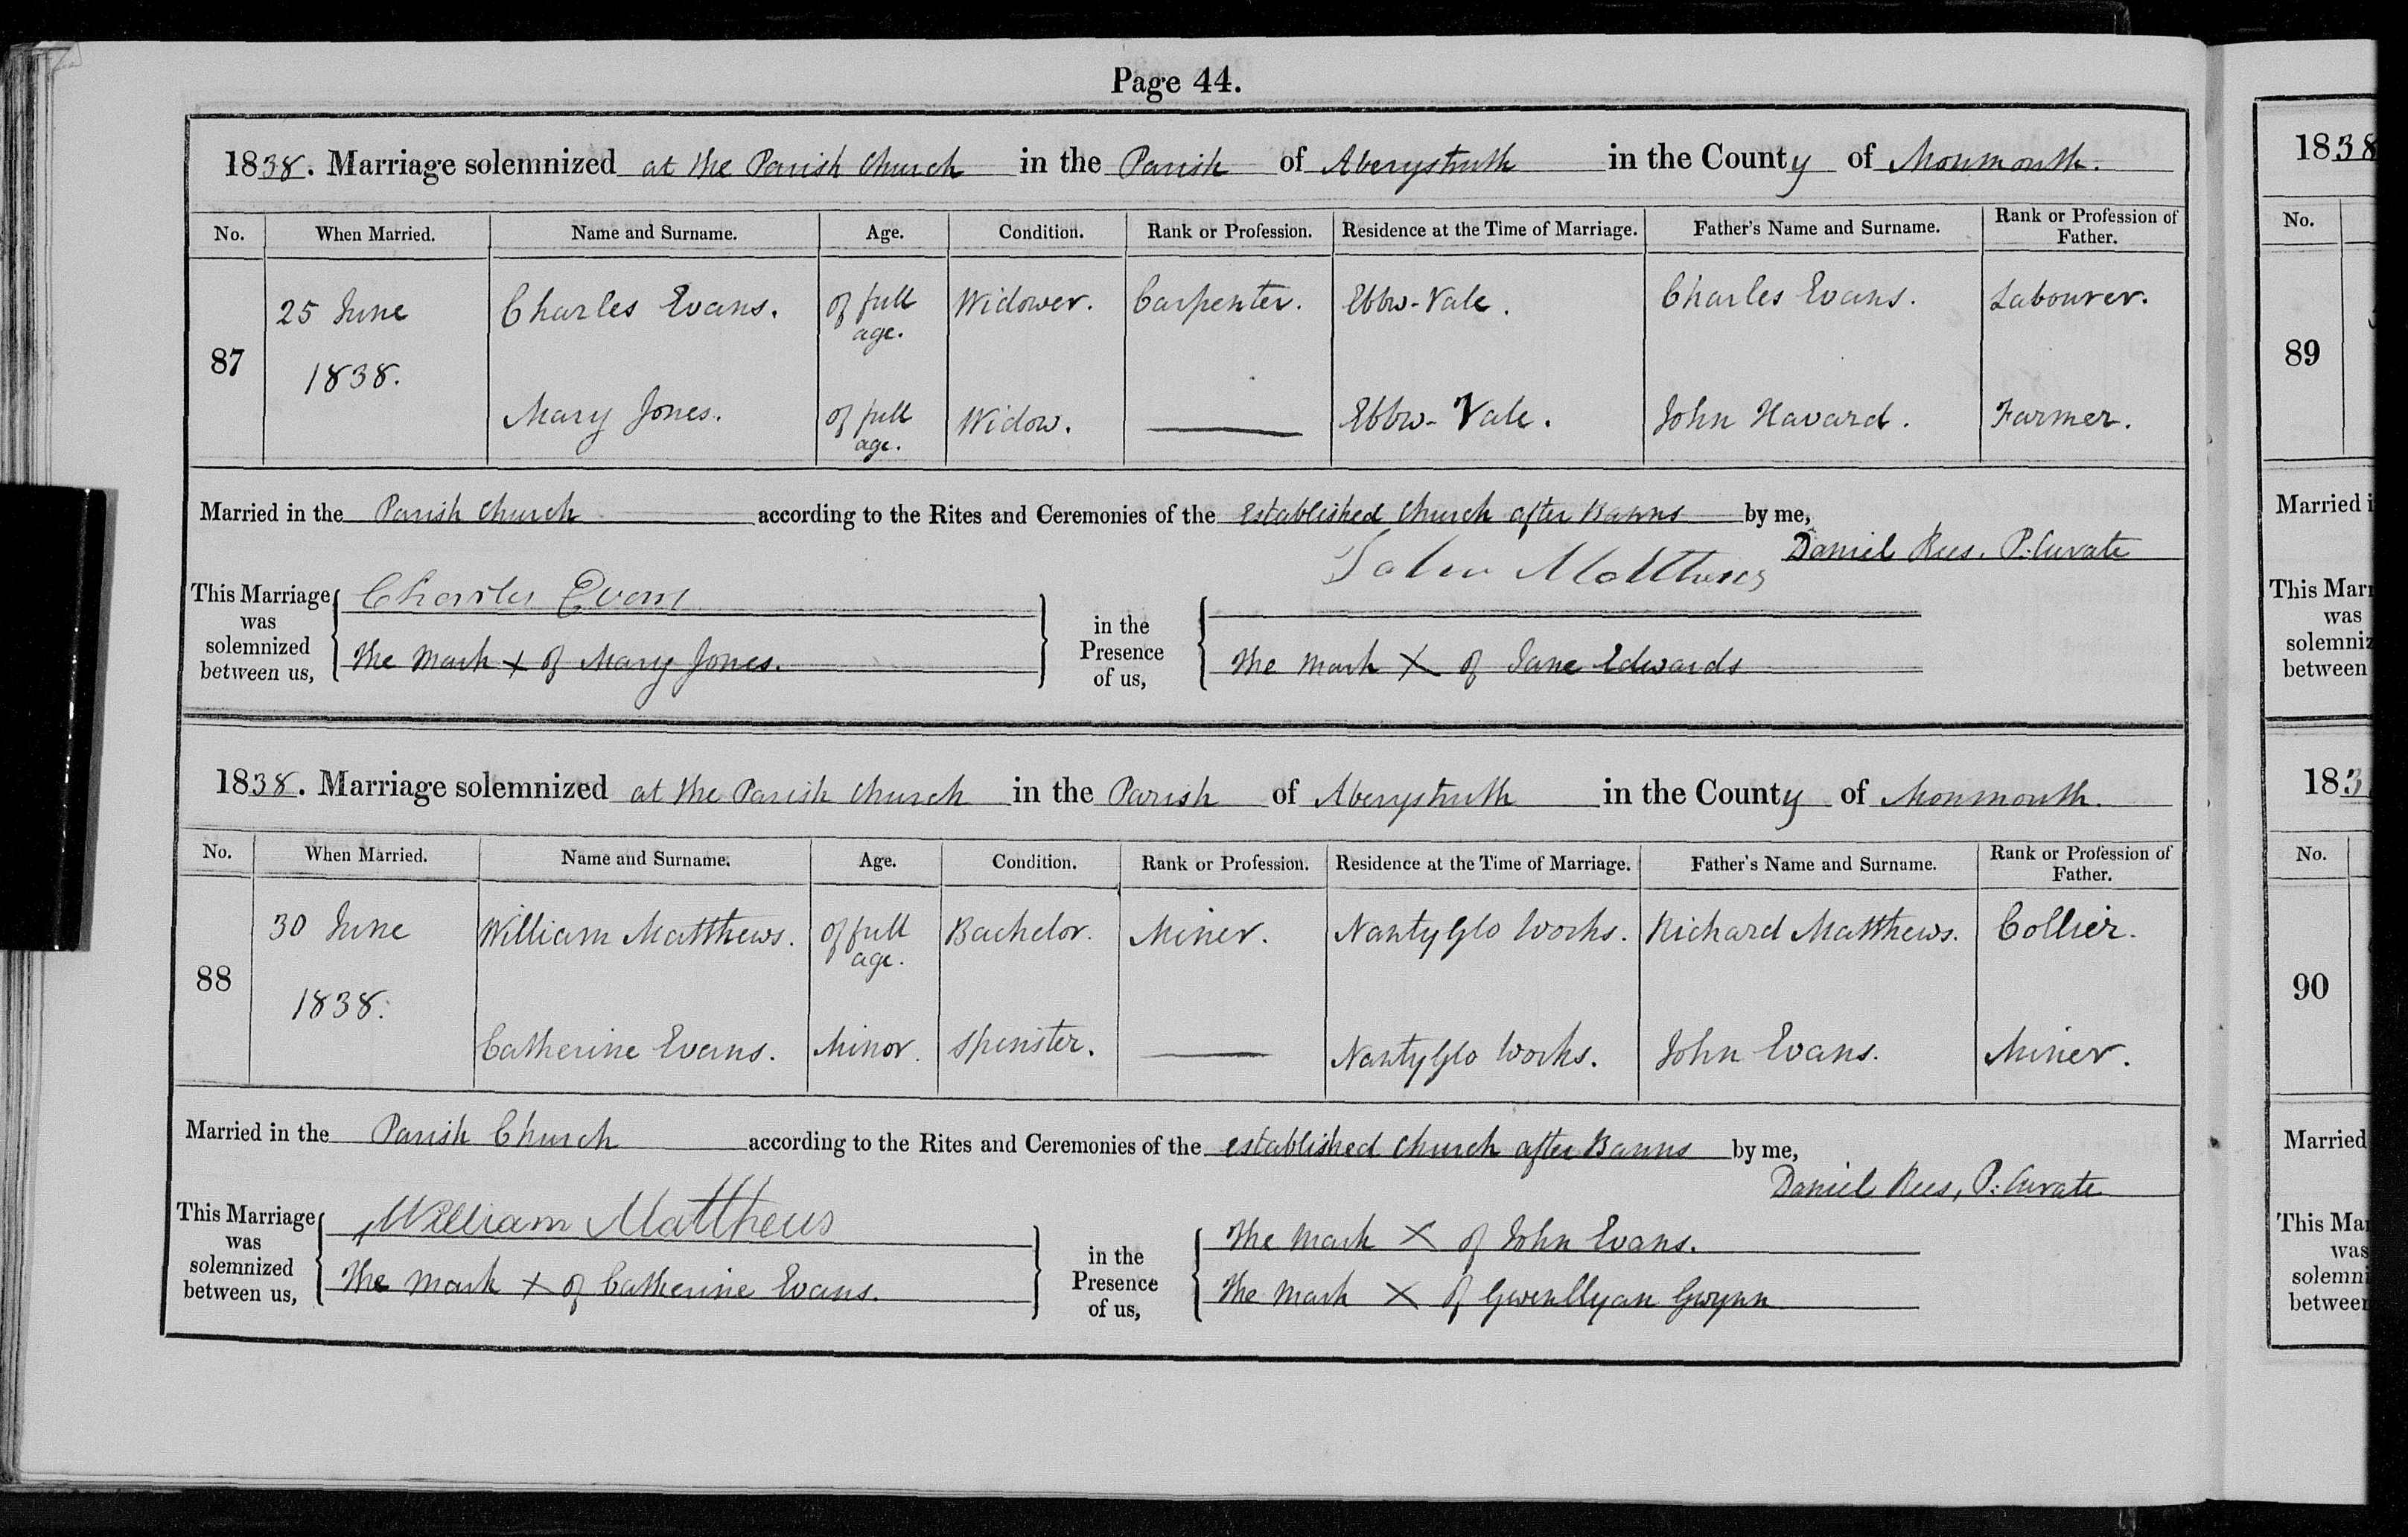 Page 44.
1838. Marriage solemnized at the Parish Church in the Parish of Aberystruth in the County of Monmouth.
No. When Married. Name and Surname. Age. Condition. Rank or Profession. Residence at the Time of Marriage. Father's Name and Surname. Rank or Profession of Father.
87 25 June 1838. Charles Evans. of full age. Widower. Carpenter. Ebbw-Vale. Charles Evans. Labourer.
Mary Jones. of full age. Widow. Ebbw-Vale. John Havard. Farmer.
Married in the Parish Church according to the Rites and Ceremonies of the Established Church after Banns by me,
Daniel Rees. P: Curate
This Marriage was solemnized between us, Charles Evans in the Presence of us, John Matthews
the mark X of Mary Jones. the mark X of Jane Edwards
1838. Marriage solemnized at the Parish Church in the Parish of Aberystruth in the County of Monmouth.
No. When Married. Name and Surname. Age. Condition. Rank or Profession. Residence at the Time of Marriage. Father's Name and Surname. Rank or Profession of Father.
88 30 June 1838. William Matthews. of full age. Bachelor. Miner. NantyGlo Works. Richard Matthews. Collier.
Catherine Evans. Minor. Spinster. NantyGlo Works. John Evans. Miner.
Married in the Parish Church according to the Rites and Ceremonies of the established Church after Banns by me,
Daniel Rees, P: Curate
This Marriage was solemnized between us, William Mattheus in the Presence of us, the mark X of John Evans.
the mark X of Catherine Evans. the mark X of Gwenllyan Gwynn
1838
No.
89
Married i
This Marr
was
solemniz
between
183
No.
90
Married
This Mar
was
solemni
between